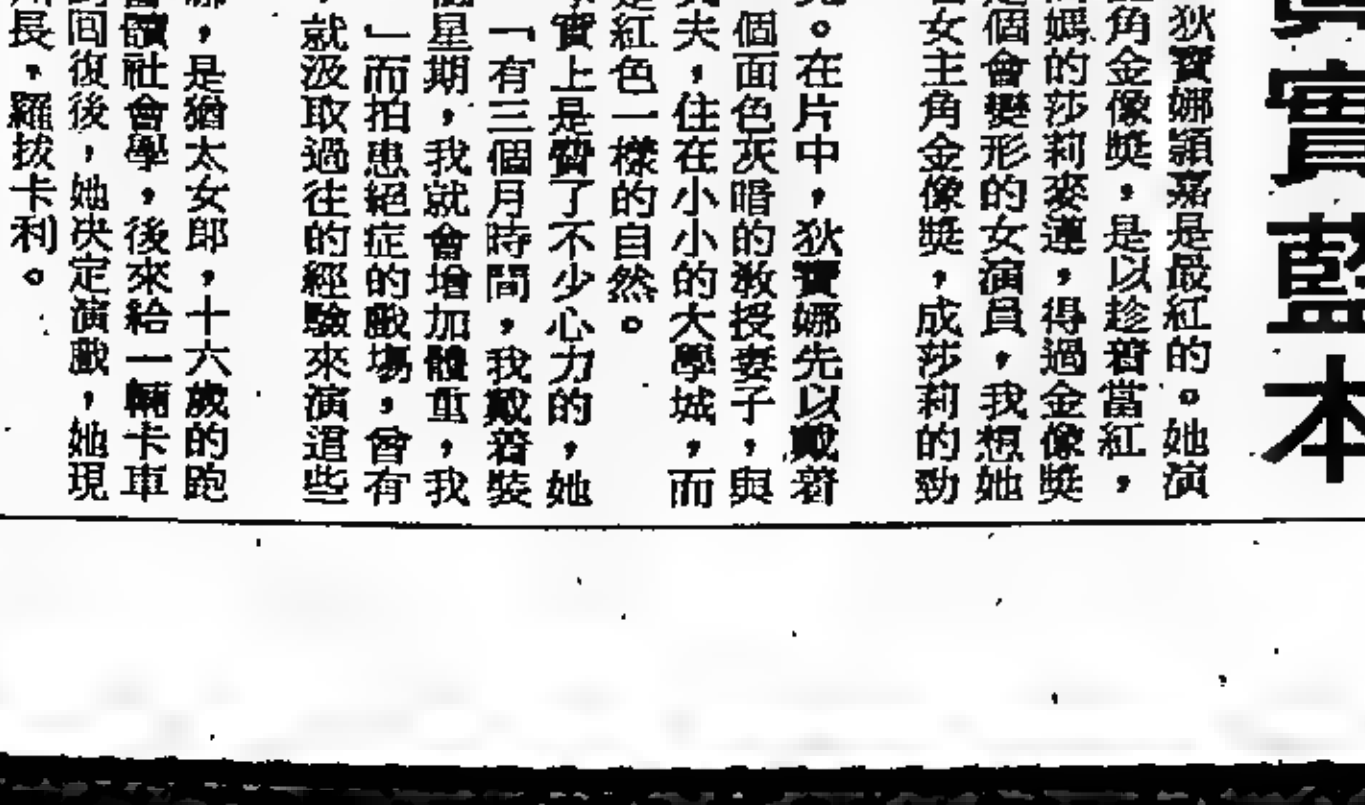 實藍本
狄寶娜穎嘉是最紅的。她演
角金像獎，是以趁着當紅，
媽的莎莉麥連，得過金像獎
個會變形的女演員，我想她
女主角金像獎，成莎莉的勁
。在片中，狄寶娜先以戴着
個面色灰暗的教授妻子，與
夫，住在小小的大學城，而
是紅色一樣的自然。
實上是費了不少心力的，她
「有三個月時間，我戴着裝
星期，我就會增加體重，我
」而拍患絕症的戲場，曾有
，就汲取過往的經驗來演這些
，是猶太女郎，十六歲的跑
讀社會學，後來給一輛卡車
回復後，她決定演戲，她現
長，羅拔卡利。